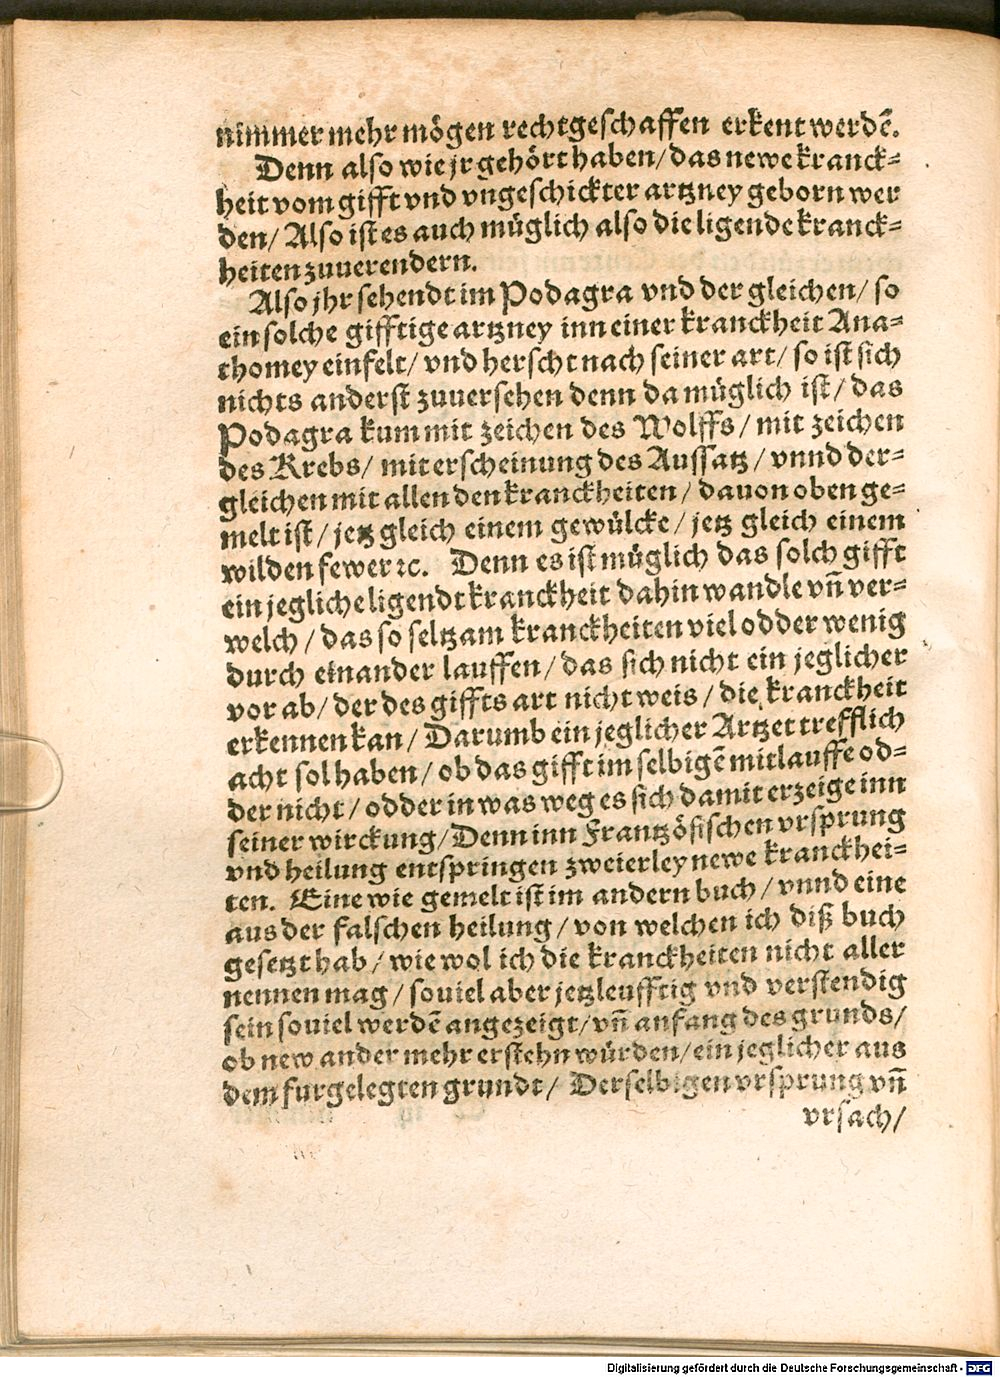 nimmer mehr mögen rechtgeschaffen erkent werdē.
Denn also wie jr gehört haben/ das newe kranck-
heit vom gifft vnd vngeschickter artzney geborn wer
den/ Also ist es auch müglich also die ligende kranck-
heiten zuuerendern.
Also jhr sehendt im Podagra vnd der gleichen/ so
ein solche gifftige artzney inn einer kranckheit Ana-
thomey einfelt/ vnd herscht nach seiner art/ so ist sich
nichts anderst zuuersehen denn da müglich ist/ das
Podagra kum mit zeichen des Wolffs/ mit zeichen
des Krebs/ mit erscheinung des Aussatz/ vnnd der-
gleichen mit allen den kranckheiten/ dauon oben ge-
melt ist/ jetz gleich einem gewülcke/ jetz gleich einem
wilden fewer ꝛc. Denn es ist müglich das solch gifft
ein jegliche ligendt kranckheit dahin wandle vñ ver-
welch/ das so seltzam kranckheiten viel odder wenig
durch einander lauffen/ das sich nicht ein jeglicher
vor ab/ der des giffts art nicht weis/ die kranckheit
erkennen kan/ Darumb ein jeglicher Artzet trefflich
acht sol haben/ ob das gifft im selbigē mitlauffe od-
der nicht/ odder in was weg es sich damit erzeige inn
seiner wirckung/ Denn inn Frantzösischen vrsprung
vnd heilung entspringen zweierley newe kranckhei-
ten. Eine wie gemelt ist im andern buch/ vnnd eine
aus der falschen heilung/ von welchen ich diß buch
gesetzt hab/ wie wol ich die kranckheiten nicht aller
nennen mag/ souiel aber jetzleufftig vnd verstendig
sein souiel werdē angezeigt/ vñ anfang des grunds/
ob new ander mehr erstehn würden/ ein jeglicher aus
dem furgelegten grundt/ Derselbigen vrsprung vñ
vrsach/
Digitalisierung gefördert durch die Deutsche Forschungsgemeinschaft - DFG